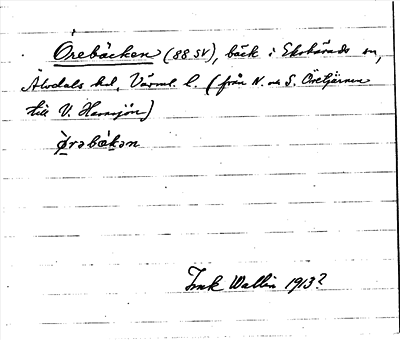 Örebäcken (88 SV), bäck i Ekshärads sn,
Älvdals hd, Värml. l. (från N. och S. Öretjärnen
till V. Havssjön)
ø̀rəbäkən
Wallin 1913?